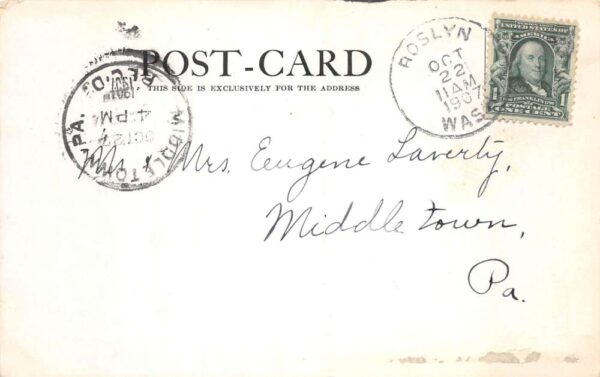 POST-CARD
THIS SIDE IS EXCLUSIVELY FOR THE ADDRESS
ROSLYN
OCT
22
11 AM
1907
WAS
UNITED STATES OF AMERICA
1
FRANKLIN
1
ONE CENT
REC'D.
1907
4 PM
OCT 27
MIDDLETOWN, PA.
Mr. & Mrs. Eugene Laverty,
Middletown,
Pa.